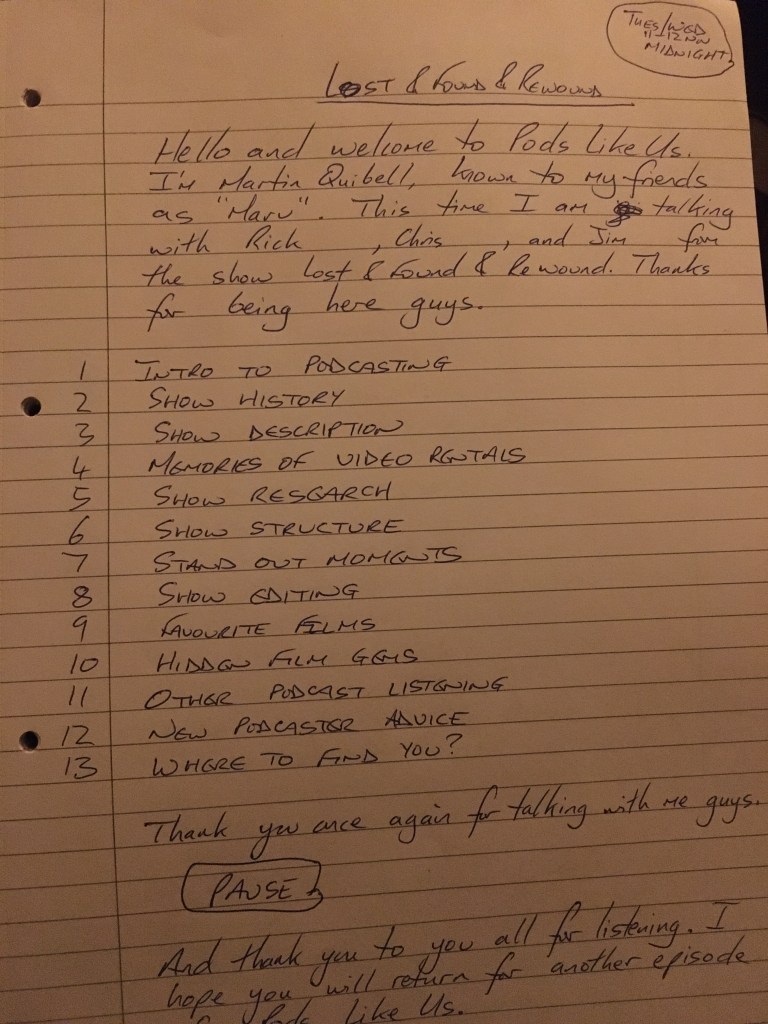 TUES/WED
11-12
MIDNIGHT
LOST & FOUND & REWOUND
Hello and welcome to Pods Like Us.
I'm Martin Quibell, known to my friends
as "Marv". This time I am talking
with Rick , Chris , and Jim from
the show Lost & Found & Rewound. Thanks
for being here guys.
1 INTRO TO PODCASTING
2 SHOW HISTORY
3 SHOW DESCRIPTION
4 MEMORIES OF VIDEO RENTALS
5 SHOW RESEARCH
6 SHOW STRUCTURE
7 STAND OUT MOMENTS
8 SHOW EDITING
9 FAVOURITE FILMS
10 HIDDEN FILM GEMS
11 OTHER PODCAST LISTENING
12 NEW PODCASTER ADVICE
13 WHERE TO FIND YOU?
Thank you once again for talking with me guys.
PAUSE
And thank you to you all for listening. I
hope you will return for another episode
Pods Like Us.